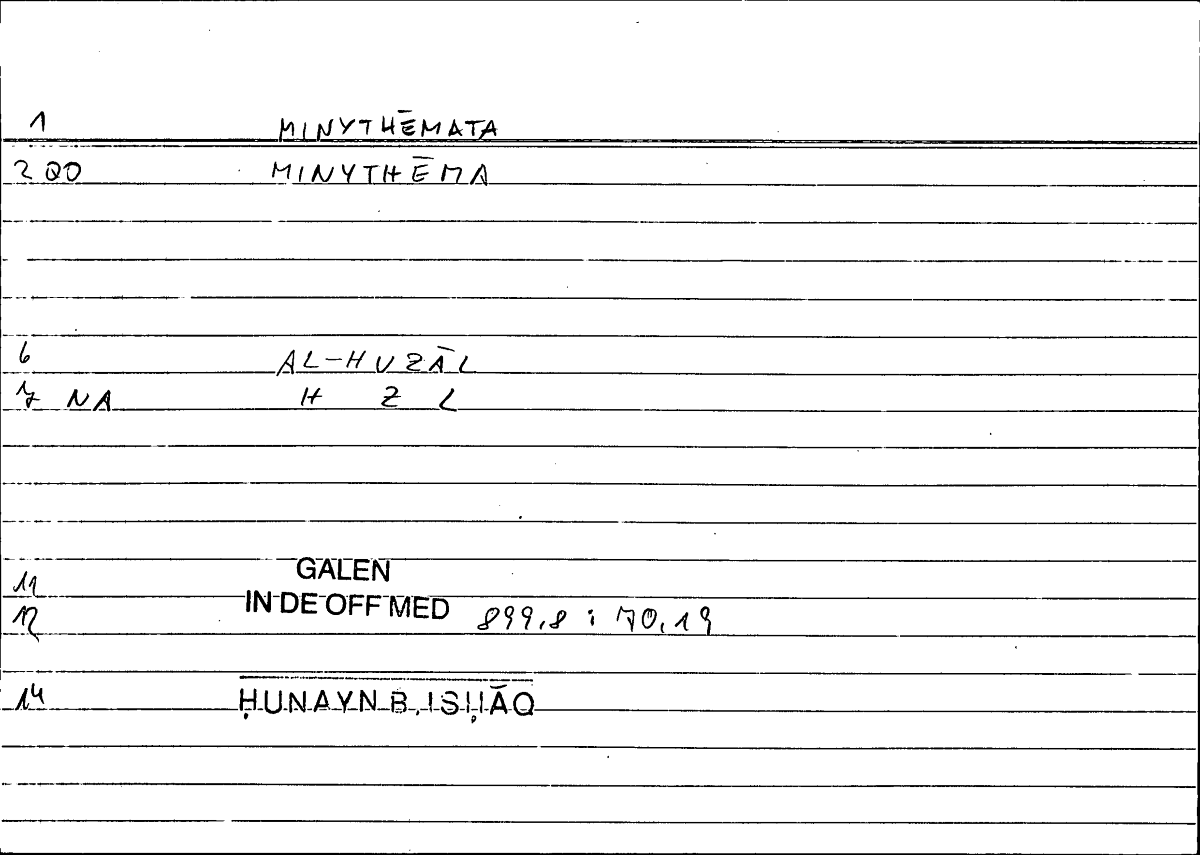 1 MINYTHĒMATA
2 QO MINYTHĒMA
6 AL-HUZĀL
7 NA H Z L
11 GALEN
12 IN DE OFF MED 899,8 : 70,19
14 ḤUNAYN B. ISḤĀQ